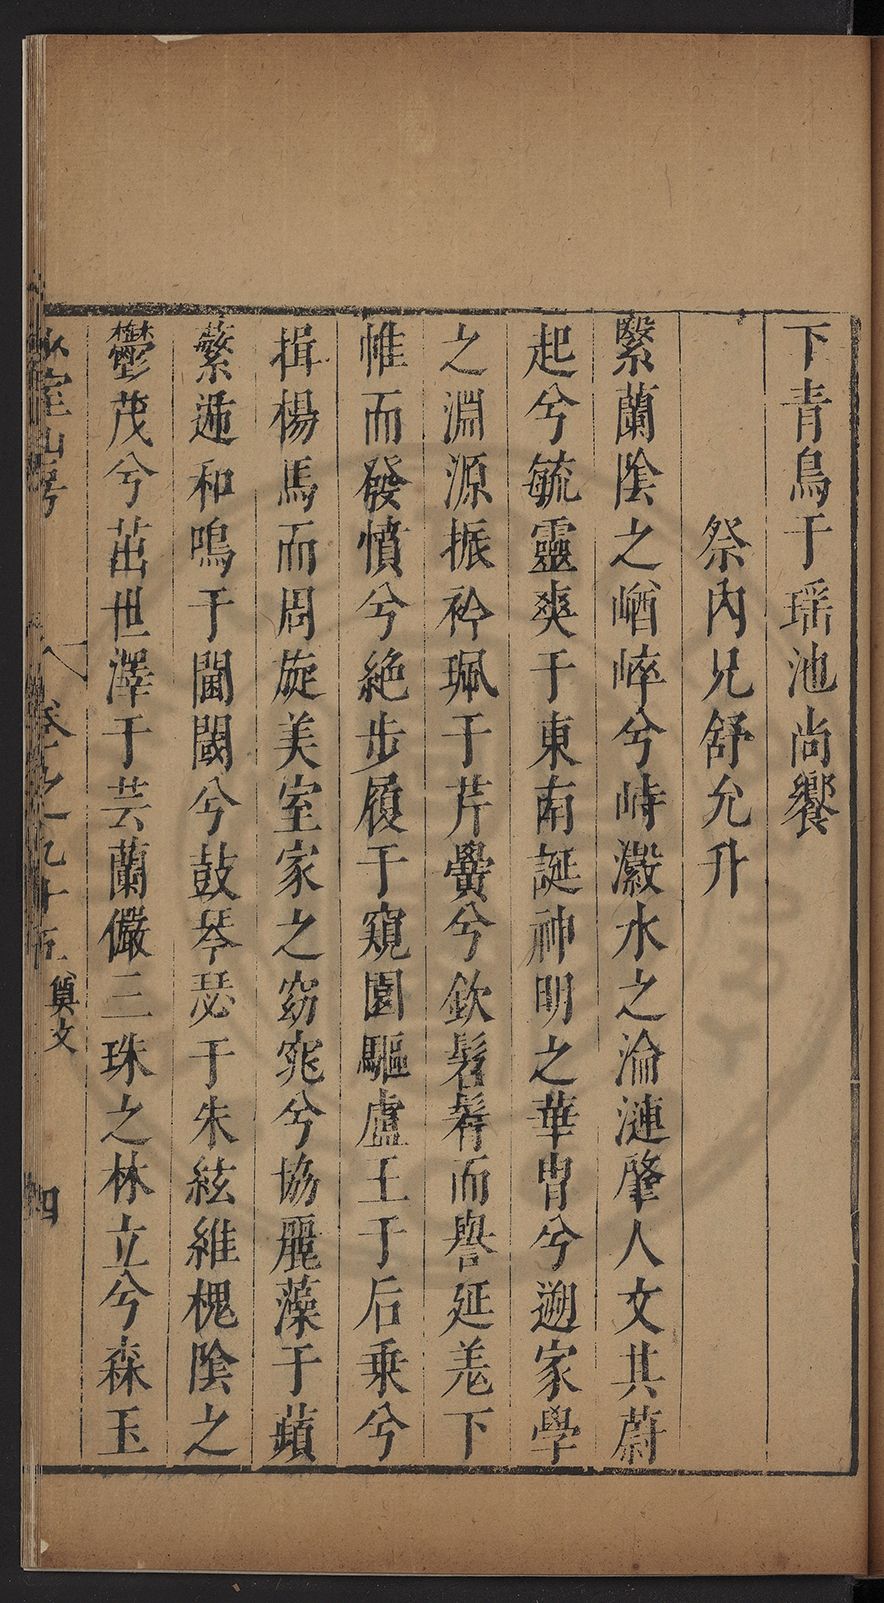 下青鳥于瑶池尚饗
祭内兄舒允升
繄蘭陰之崷崪兮峙瀫水之淪漣肇人文其蔚
起兮毓靈爽于東南誕神明之華胄兮遡家學
之淵源振衿珮于芹黌兮欽髦髯而譽延羗下
帷而發憤兮絶步履于窺園驅盧王于后乗兮
揖楊馬而周旋美室家之窈窕兮協麗藻于蘋
蘩遞和鳴于閫閾兮鼓琴瑟于朱絃維槐陰之
鬱茂兮茁世澤于芸蘭儼三珠之林立兮森玉
室山房
卷之九十五 奠文
四